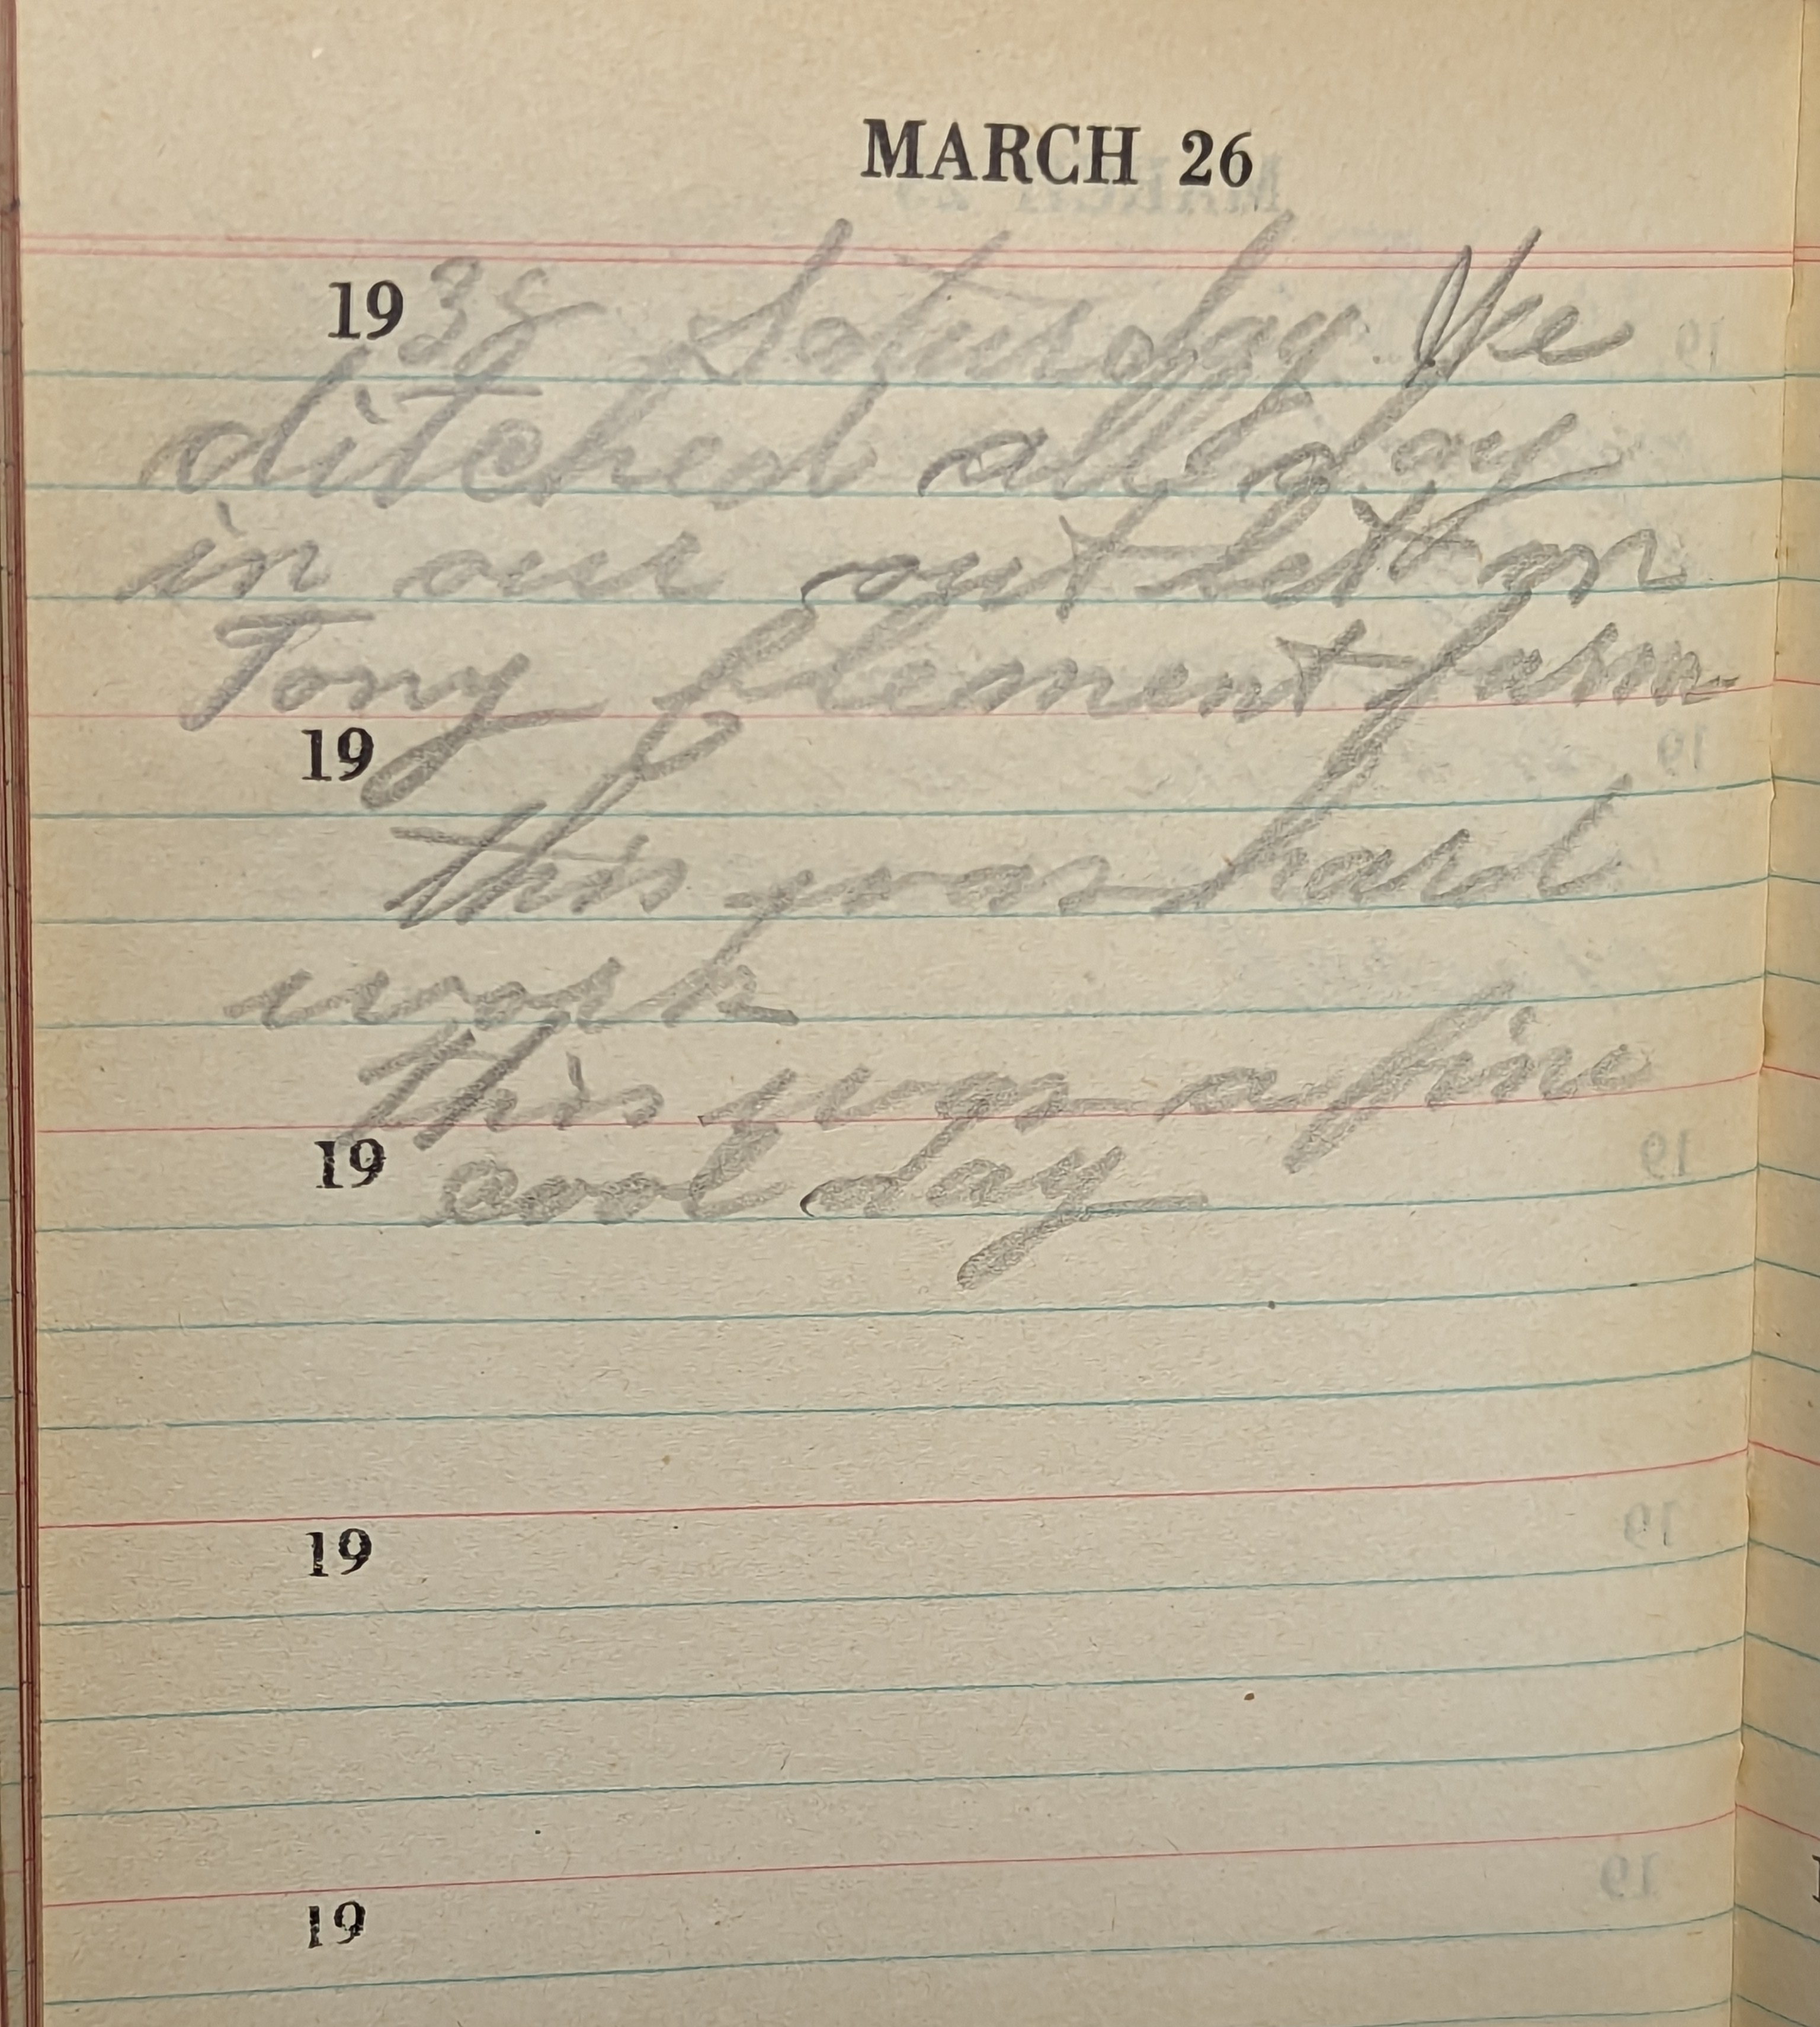 MARCH 26
1938 Saturday. We
ditched all day
in our outlett on
Tony Clement farm
19
this was hard
work
this was a fine
19 cool day
19
19